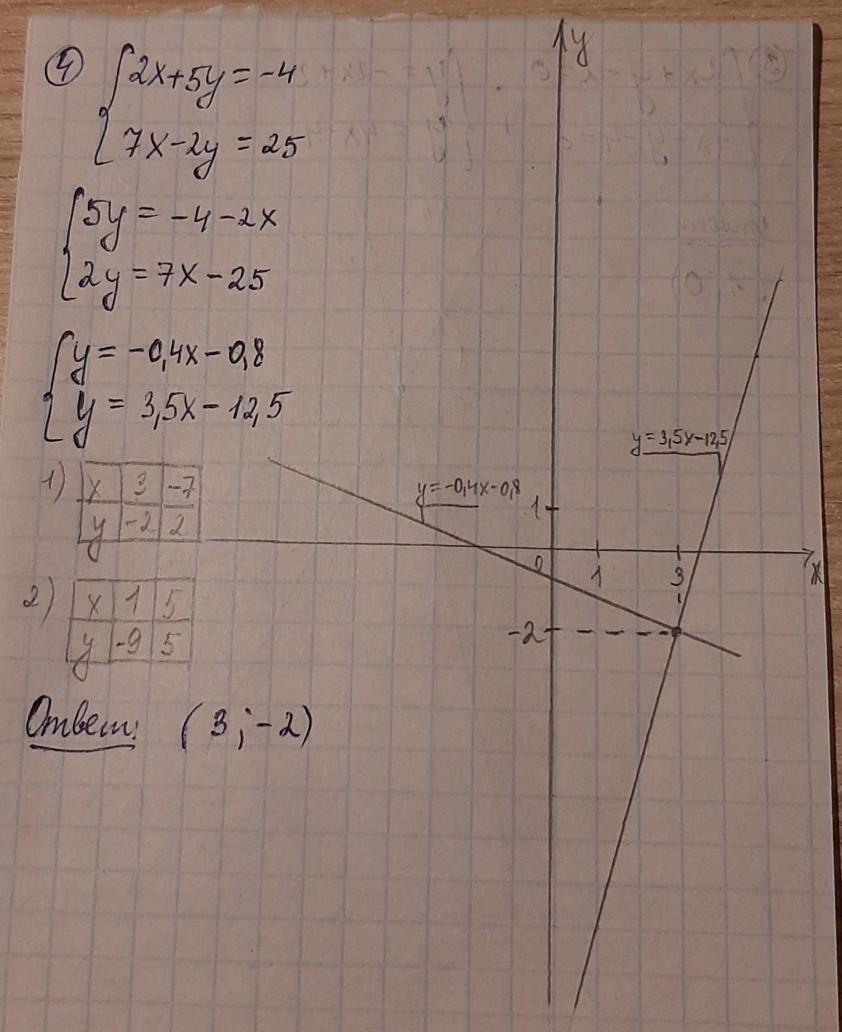 4
2x+5y=-4
7x-2y=25
5y=-4-2x
2y=7x-25
y=-0,4x-0,8
y=3,5x-12,5
1) x 3 -7
y -2 2
2) x 1 5
y -9 5
Ответ: (3;-2)
y
y=3,5x-12,5
y=-0,4x-0,8
1
0 1 3 x
-2